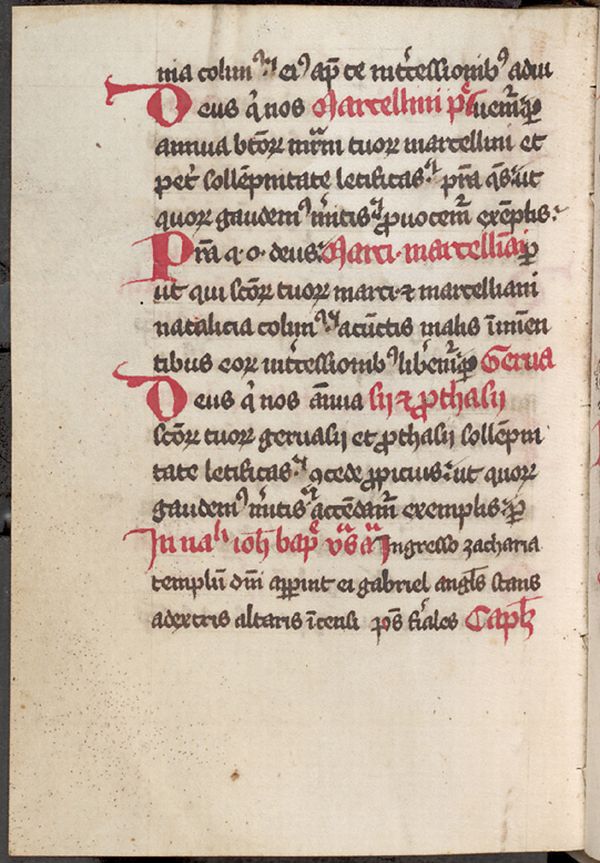 nia colim⁹ ei⁹ ap̄ te int̾cessionib⁹ adiu
Deus q̇ nos Marcellini pet⁊ uem̄ p̲
annua bt̄oꝝ mr̄m tuoꝝ marcellini et
pet᷒ sollēpnitate letificas. pr̄a q̄s ut
quoꝝ gaudem⁹ m̄itis ꝓuocem̄ exēplis.
Pr̄a q. o. deus. Marci. marcelliāi p̲
ut qui sc̄oꝝ tuoꝝ marci ⁊ marcelliani
natalicia colim⁹ a cūctis malis īmīnen
tibus eoꝝ int̾cessionib⁹ libem̄ p̲ Gerua
Deus q̇ nos ānua sij ⁊ ꝓthasij
sc̄oꝝ tuoꝝ geruasij et ꝓthasij sollēpni
tate letificas. ꝯcede ꝓpicius. ut quoꝝ
gaudem⁹ m̄itis accēdam̄ exemplis. p̲
In nał ioħ bap̄ vs̄ a Ingresso zacharia
templū dn̄i apꝑuit ei gabriel angl̄s stans
a dextris altaris īcensi ps̄ fiales Capł